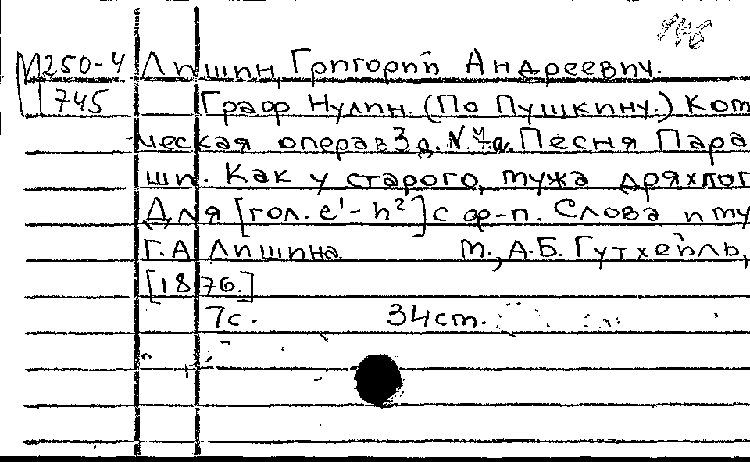 М250-4 Лишин, Григорий Андреевич.
745 Граф Нулин. (По Пушкину.) Ком
ческая опера в 3 д. N 4a. Песня Пара
ши. Как у старого, мужа дряхлог
Для [гол. e¹-h²] с ф-п. Слова и му
Г.А Лишина М., А.Б. Гутхейль,
[1876.]
7с. 34cm.